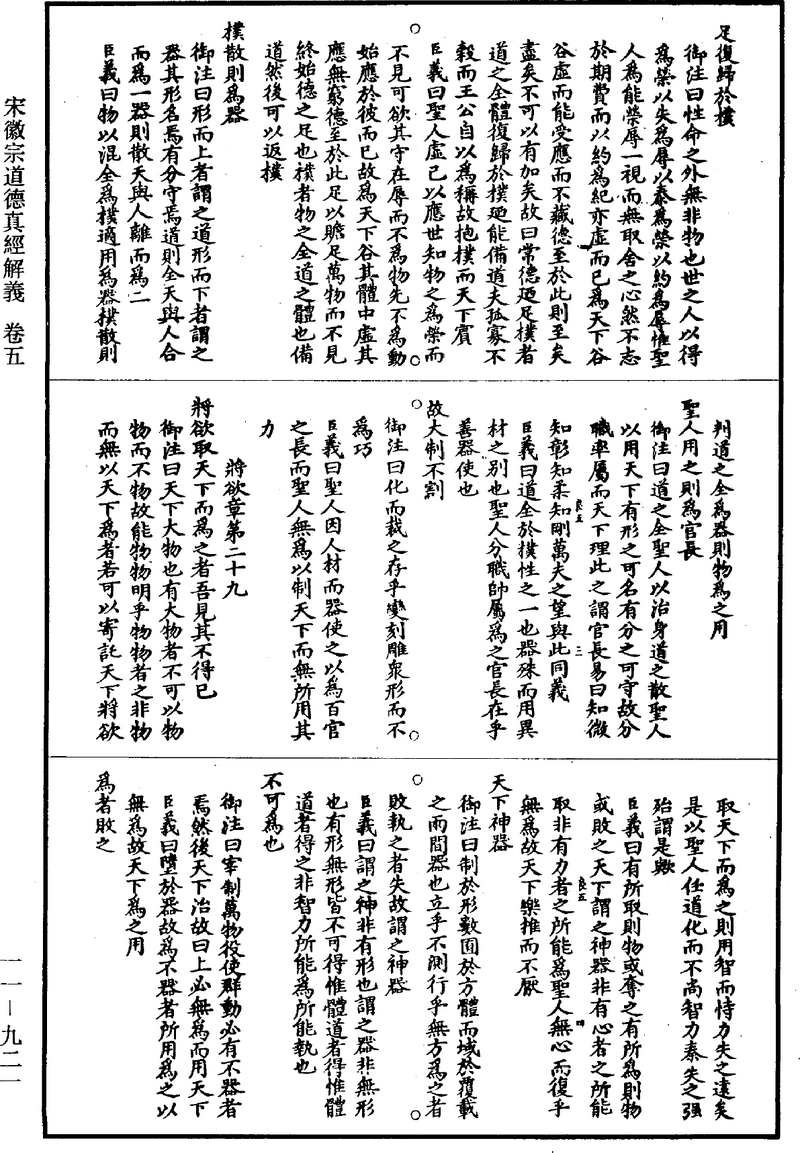 足復歸於樸
御注曰性命之外無非物也世之人以得
為榮以失為辱以泰為榮以約為辱惟聖
人為能榮辱一視而無取舍之心然不志
於期費而以約為紀亦虛而已為天下谷
谷虛而能受應而不藏德至於此則至矣
盡矣不可以有加矣故曰常德廼足樸者
道之全體復歸於樸廼能備道夫孤寡不
穀而王公自以為稱故抱樸而天下賓
臣義曰聖人虛己以應世知物之為榮而
不見可欲其守在辱而不為物先不為動
始應於彼而已故為天下谷其體中虛其
應無窮德至於此足以贍足萬物而不見
終始德之足也樸者物之全道之體也備
道然後可以返樸
樸散則為器
御注曰形而上者謂之道形而下者謂之
器其形名焉有分守焉道則全天與人合
而為一器則散天與人離而為二
臣義曰物以混全為樸適用為器樸散則
判道之全為器則物為之用
聖人用之則為官長
御注曰道之全聖人以治身道之散聖人
以用天下有形之可名有分之可守故分
職率屬而天下理此之謂官長易曰知微
知彰知柔知剛萬夫之望與此同義
臣義曰道全於樸性之一也器殊而用異
材之別也聖人分職帥屬為之官長在乎
善器使也
故大制不割
御注曰化而裁之存乎變刻雕衆形而不
為巧
臣義曰聖人因人材而器使之以為百官
之長而聖人無為以制天下而無所用其
力
將欲章第二十九
將欲取天下而為之者吾見其不得已
御注曰天下大物也有大物者不可以物
物而不物故能物物明乎物物者之非物
而無以天下為者若可以寄託天下將欲
取天下而為之則用智而恃力失之遠矣
是以聖人任道化而不尚智力秦失之强
殆謂是歟
臣義曰有所取則物或奪之有所為則物
或敗之天下謂之神器非有心者之所能
取非有力者之所能為聖人無心而復乎
無為故天下樂推而不厭
天下神器
御注曰制於形數囿於方體而域於覆載
之兩間器也立乎不測行乎無方為之者
敗執之者失故謂之神器
臣義曰謂之神非有形也謂之器非無形
也有形無形皆不可得惟體道者得惟體
道者得之非智力所能為所能執也
不可為也
御注曰宰制萬物役使群動必有不器者
焉然後天下治故曰上必無為而用天下
臣義曰墮於器故為不器者所用為之以
無為故天下為之用
為者敗之
良五
三
良五
四
宋徽宗道德真經解義 卷五
一一－九二一